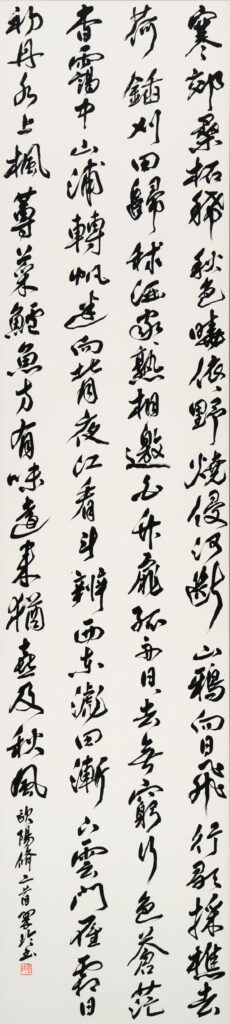 寒郊桑柘稀秋色曉依〻野燒侵河斷山鴉向日飛行歌採樵去
荷鍤刈田歸秫酒家〻熟相邀白竹扉孤舟日〻去無窮行色蒼茫
杳靄中山浦轉帆迷向背夜江看斗辨西東滮田漸下雲間雁霜日
初丹水上楓蓴菜鱸魚方有味遠來猶喜及秋風
歐陽脩二首